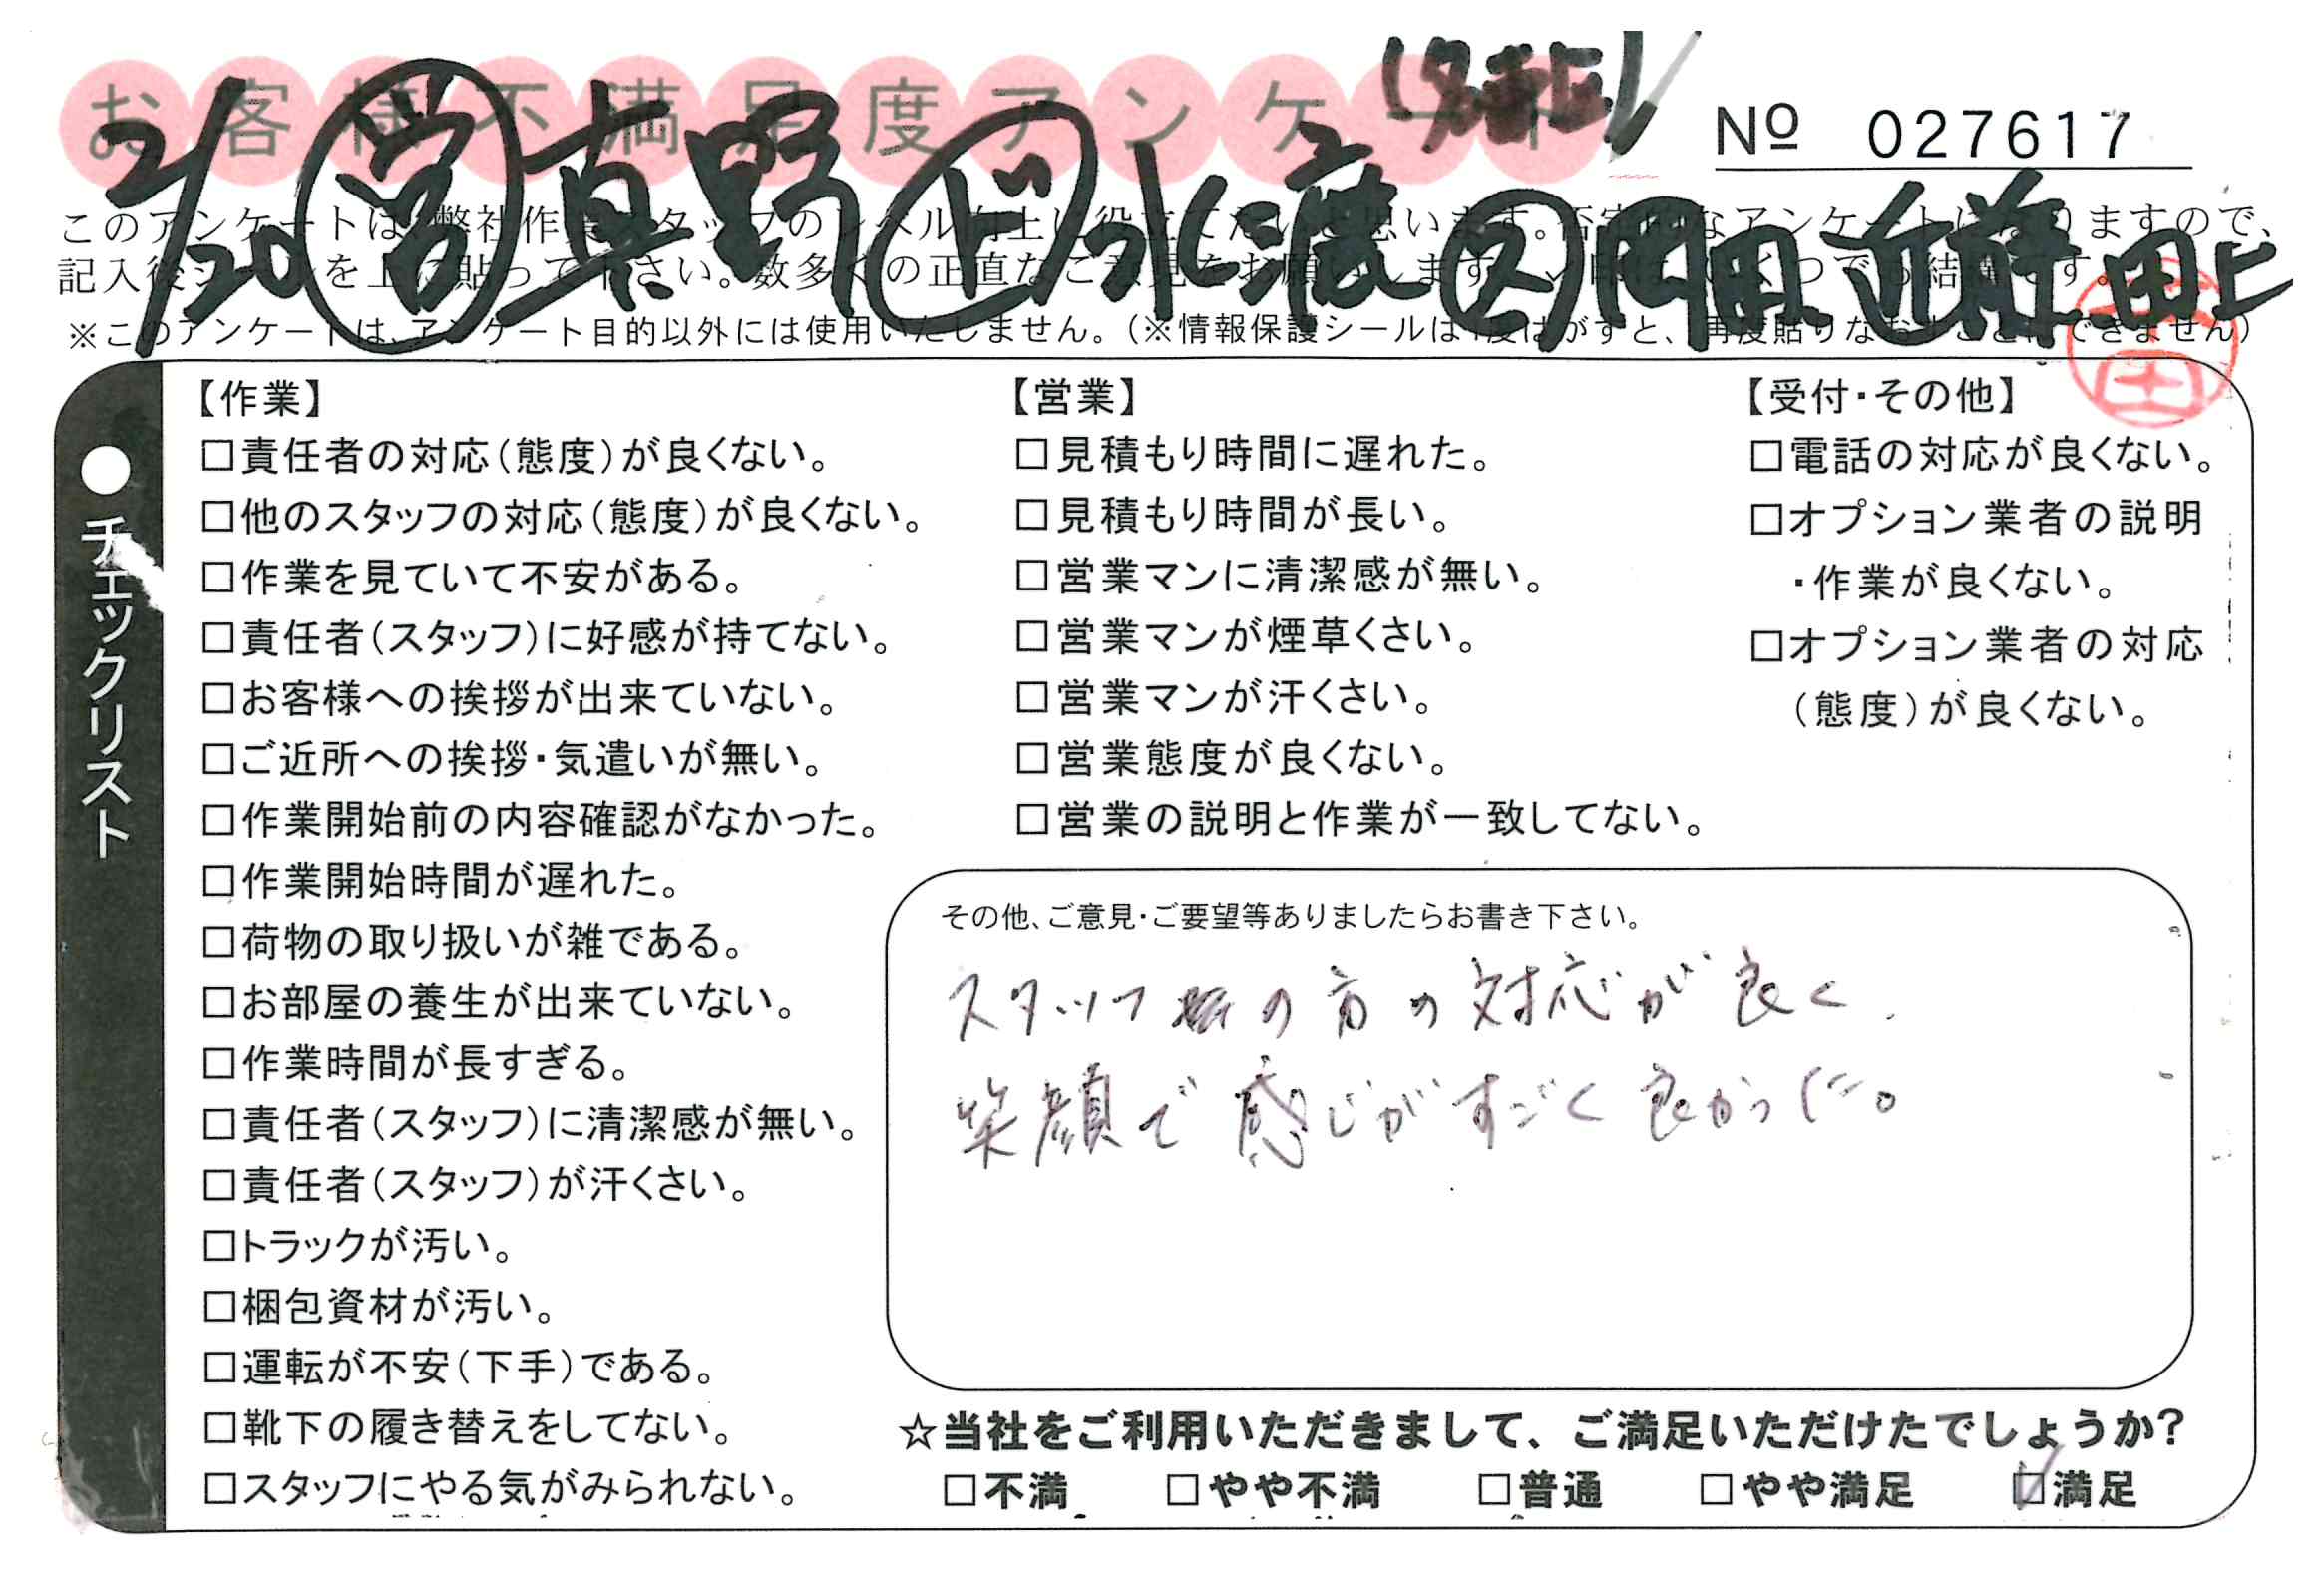 お客様不満足度アンケート
№ 027617
2/20 営 真野 ド 水渡 ス 岡田 近藤 田上
このアンケートは、弊社作業スタッフのレベル向上に役立てたいと思います。否定的なアンケートになりますので、
記入後シールを上に貼って下さい。数多くの正直なご意見をお願いします。
※このアンケートは、アンケート目的以外には使用いたしません。(※情報保護シールは1度はがすと、再度貼りなおすことはできません)
●チェックリスト
【作業】
□責任者の対応(態度)が良くない。
□他のスタッフの対応(態度)が良くない。
□作業を見ていて不安がある。
□責任者(スタッフ)に好感が持てない。
□お客様への挨拶が出来ていない。
□ご近所への挨拶・気遣いが無い。
□作業開始前の内容確認がなかった。
□作業開始時間が遅れた。
□荷物の取り扱いが雑である。
□お部屋の養生が出来ていない。
□作業時間が長すぎる。
□責任者(スタッフ)に清潔感が無い。
□責任者(スタッフ)が汗くさい。
□トラックが汚い。
□梱包資材が汚い。
□運転が不安(下手)である。
□靴下の履き替えをしてない。
□スタッフにやる気がみられない。
【営業】
□見積もり時間に遅れた。
□見積もり時間が長い。
□営業マンに清潔感が無い。
□営業マンが煙草くさい。
□営業マンが汗くさい。
□営業態度が良くない。
□営業の説明と作業が一致してない。
【受付・その他】
□電話の対応が良くない。
□オプション業者の説明
・作業が良くない。
□オプション業者の対応
(態度)が良くない。
その他、ご意見・ご要望等ありましたらお書き下さい。
スタッフの方の対応が良く
笑顔で感じがすごく良かった。
☆当社をご利用いただきまして、ご満足いただけたでしょうか?
□不満 □やや不満 □普通 □やや満足 ☑満足